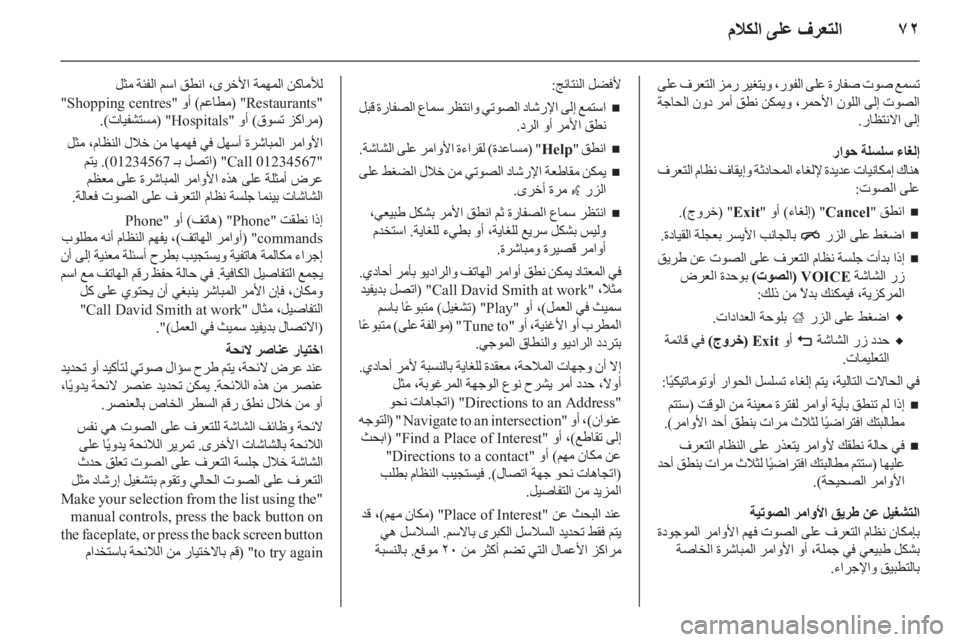 ٧٢ التعرف على الكلام
تسمع صوت صفارة على الفور، ويتغير رمز التعرف على
الصوت إلى اللون الأحمر، ويمكن نطق أمر دون الحاجة
إلى الانتظار.
إلغاء سلسلة حوار
هناك إمكانيات عديدة لإلغاء المحادثة وإيقاف نظام التعرف
على الصوت:
■ انطق "Cancel" (إلغاء) أو "Exit" (خروج).
■ اضغط على الرز n بالجانب الأيسر بعجلة القيادة.
■ إذا بدأت جلسة نظام التعرف على الصوت عن طريق
رز الشاشة VOICE (الصوت) بوحدة العرض
المركزية، فيمكنك بدلاً من ذلك:
◆ اضغط على الرز ; بلوحة العدادات.
◆ حدد رز الشاشة m أو Exit (خروج) في قائمة
التعليمات.
في الحالات التالية، يتم إلغاء تسلسل الحوار أوتوماتيكيًا:
■ إذا لم تنطق بأية أوامر لفترة معينة من الوقت (ستتم
مطالبتك افتراضيًا لثلاث مرات بنطق أحد الأوامر).
■ في حالة نطقك لأوامر يتعذر على النظام التعرف
عليها (ستتم مطالبتك افتراضيًا لثلاث مرات بنطق أحد
الأوامر الصحيحة).
التشغيل عن طريق الأوامر الصوتية
بإمكان نظام التعرف على الصوت فهم الأوامر الموجودة
بشكل طبيعي في جملة، أو الأوامر المباشرة الخاصة
بالتطبيق والإجراء.
لأفضل النتائج:
■ استمع إلى الإرشاد الصوتي وانتظر سماع الصفارة قبل
نطق الأمر أو الرد.
■ انطق "Help" (مساعدة) لقراءة الأوامر على الشاشة.
■ يمكن مقاطعة الإرشاد الصوتي من خلال الضغط على
الرز w مرة أخرى.
■ انتظر سماع الصفارة ثم انطق الأمر بشكل طبيعي،
وليس بشكل سريع للغاية، أو بطيء للغاية. استخدم
أوامر قصيرة ومباشرة.
في المعتاد يمكن نطق أوامر الهاتف والراديو بأمر أحادي.
مثلاً، "Call David Smith at work" (اتصل بديفيد
سميث في العمل)، أو "Play" (تشغيل) متبوعًا باسم
المطرب أو الأغنية، أو "Tune to" (موالفة على) متبوعًا
بتردد الراديو والنطاق الموجي.
إلا أن وجهات الملاحة، معقدة للغاية بالنسبة لأمر أحادي.
أولاً، حدد أمر يشرح نوع الوجهة المرغوبة، مثل
"Directions to an Address" (اتجاهات نحو
عنوان)، أو "Navigate to an intersection" (التوجه
إلى تقاطع)، أو "Find a Place of Interest" (ابحث
عن مكان مهم) أو "Directions to a contact"
(اتجاهات نحو جهة اتصال). فيستجيب النظام بطلب
المزيد من التفاصيل.
عند البحث عن "Place of Interest" (مكان مهم)، قد
يتم فقط تحديد السلاسل الكبرى بالاسم. السلاسل هي
مراكز الأعمال التي تضم أكثر من ٢٠ موقع. بالنسبة
للأماكن المهمة الأخرى، انطق اسم الفئة مثل
"Restaurants" (مطاعم) أو "Shopping centres"
(مراكز تسوق) أو "Hospitals" (مستشفيات).
الأوامر المباشرة أسهل في فهمها من خلال النظام، مثل
"Call 01234567" (اتصل بـ 01234567). يتم
عرض أمثلة على هذه الأوامر المباشرة على معظم
الشاشات بينما جلسة نظام التعرف على الصوت فعالة.
إذا نطقت "Phone" (هاتف) أو "Phone
commands" (أوامر الهاتف)، يفهم النظام أنه مطلوب
إجراء مكالمة هاتفية ويستجيب بطرح أسئلة معينة إلى أن
يجمع التفاصيل الكافية. في حالة حفظ رقم الهاتف مع اسم
ومكان، فإن الأمر المباشر ينبغي أن يحتوي على كل
التفاصيل، مثال "Call David Smith at work"
(الاتصال بديفيد سميث في العمل)".
اختيار عناصر لائحة
عند عرض لائحة، يتم طرح سؤال صوتي لتأكيد أو تحديد
عنصر من هذه اللائحة. يمكن تحديد عنصر لائحة يدويًا،
أو من خلال نطق رقم السطر الخاص بالعنصر.
لائحة وظائف الشاشة للتعرف على الصوت هي نفس
اللائحة بالشاشات الأخرى. تمرير اللائحة يدويًا على
الشاشة خلال جلسة التعرف على الصوت تعلق حدث
التعرف على الصوت الحالي وتقوم بتشغيل إرشاد مثل
"Make your selection from the list using the
manual controls, press the back button on
the faceplate, or press the back screen button
to try again" (قم بالاختيار من اللائحة باستخدام